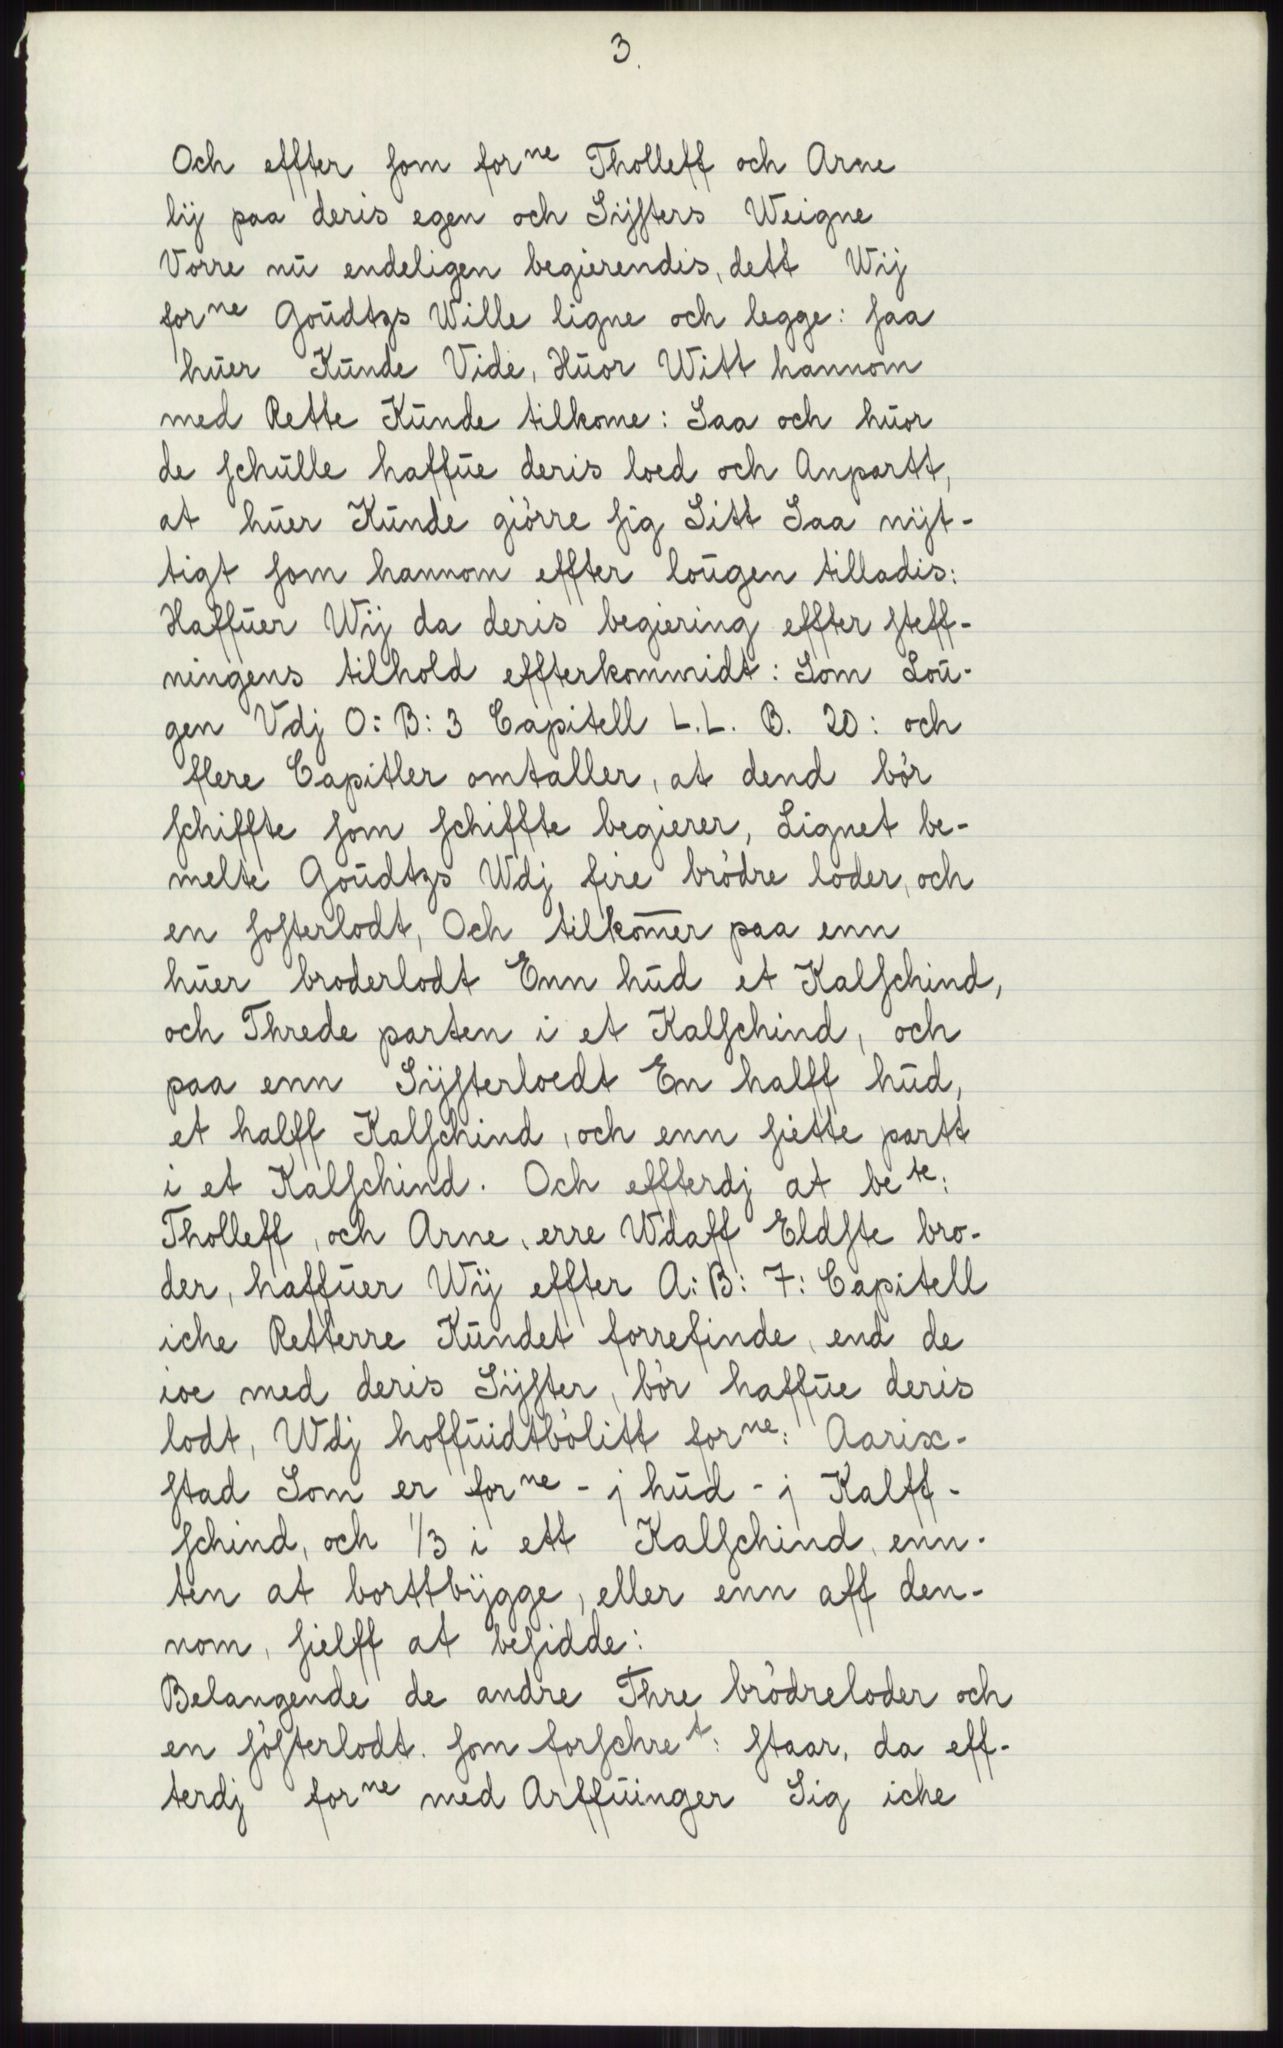 3.
Och effter som forne Tholleff och Arne
lij paa deris egen och Sÿsters Weigne
Vorre nū endeligen begierendis, dett Wij
forne Goūdtzs Wille ligne och legge: saa
hūer Kūnde Vide, Hūor Witt hannom
med Rette Kūnde tilkome: Saa och hūor
de schūlle haffūe deris loed och Anpartt,
at hūer Kūnde giörre sig Sitt Saa nÿt-
tigt som hannom effter loūgen tilladis:
Haffūer Wij da deris begiering effter steff-
ningens tilhold effterkommidt: Som Loū-
gen Vdj O: B: 3 Capitell L.L. B. 20: och
flere Capitler omtaller, at dend bör
schiffte som schiffte begierer, Lignet be-
melte Goūdtzs Wdj fire brödre loder, och
en sosterlodt, Och tilkom̄er paa enn
hūer broderlodt Enn hūd et Kalschind,
och Threde parten i et Kalschind, och
paa enn Sÿsterloedt En halff hūd,
et halff Kalschind, och enn siette partt
i et Kalschind. Och effterdj at bete:
Tholleff, och Arne, erre Wdaff Eldste bro-
der, haffūer Wÿ effter A: B: 7: Capitell
iche Retterre Kūndet forrefinde, end de
ioe med deris Sÿster, bör haffūe deris
lodt, Wdj hoffūidtbölitt forne: Aarix-
stad Som er forne - j hūd - j Kalff-
schind, och 1/3 i ett Kalschind, enn-
ten at borttbÿgge, eller enn aff den-
nom, sielff at besidde:
Belangende de andre Thre brödreloder och
en sösterlodt. som forschret: staar, da eff-
terdj forne med Arffūinger Sig iche